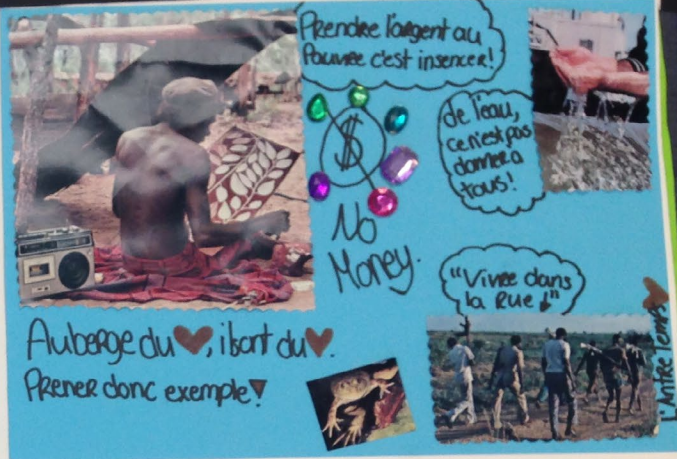 Prendre l'argent au
Pauvre c'est insencer!
de l'eau,
ce n'est pas
donner a
tous!
$
No
Money.
"Vivre dans
la Rue!"
Auberge du ♥, ils ont du ♥.
Prener donc exemple!
L'Antre Temps